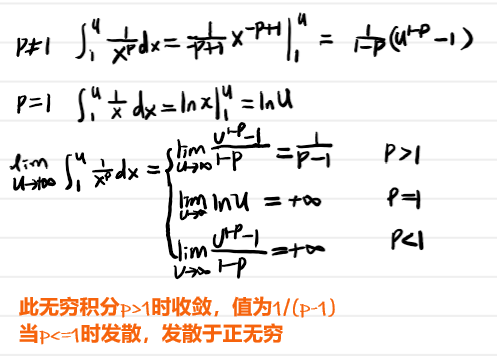 P≠1 ∫₁ᵘ 1/xᵖ dx = 1/(-p+1) x^(-p+1) |₁ᵘ = 1/(1-p) (u^(1-p) - 1)
P=1 ∫₁ᵘ 1/x dx = ln x |₁ᵘ = ln u
lim u→+∞ ∫₁ᵘ 1/xᵖ dx = { lim u→∞ (u^(1-p) - 1)/(1-p) = 1/(p-1) P>1
lim u→∞ ln u = +∞ P=1
lim u→∞ (u^(1-p) - 1)/(1-p) = +∞ P<1
此无穷积分p>1时收敛，值为1/(p-1)
当p<=1时发散，发散于正无穷